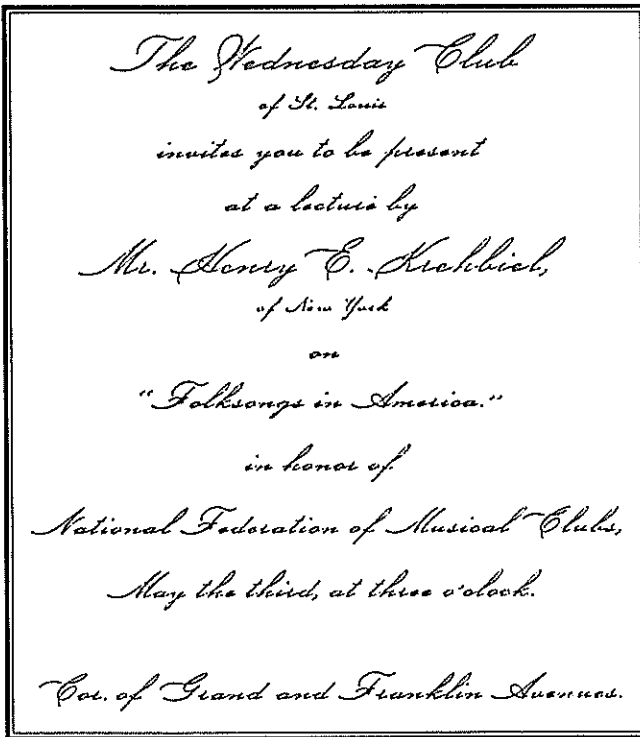 The Wednesday Club
of St. Louis
invites you to be present
at a lecture by
Mr. Henry E. Krehbiel,
of New York
on
"Folksongs in America."
in honor of
National Federation of Musical Clubs,
May the third, at three o'clock.
Cor. of Grand and Franklin Avenues.